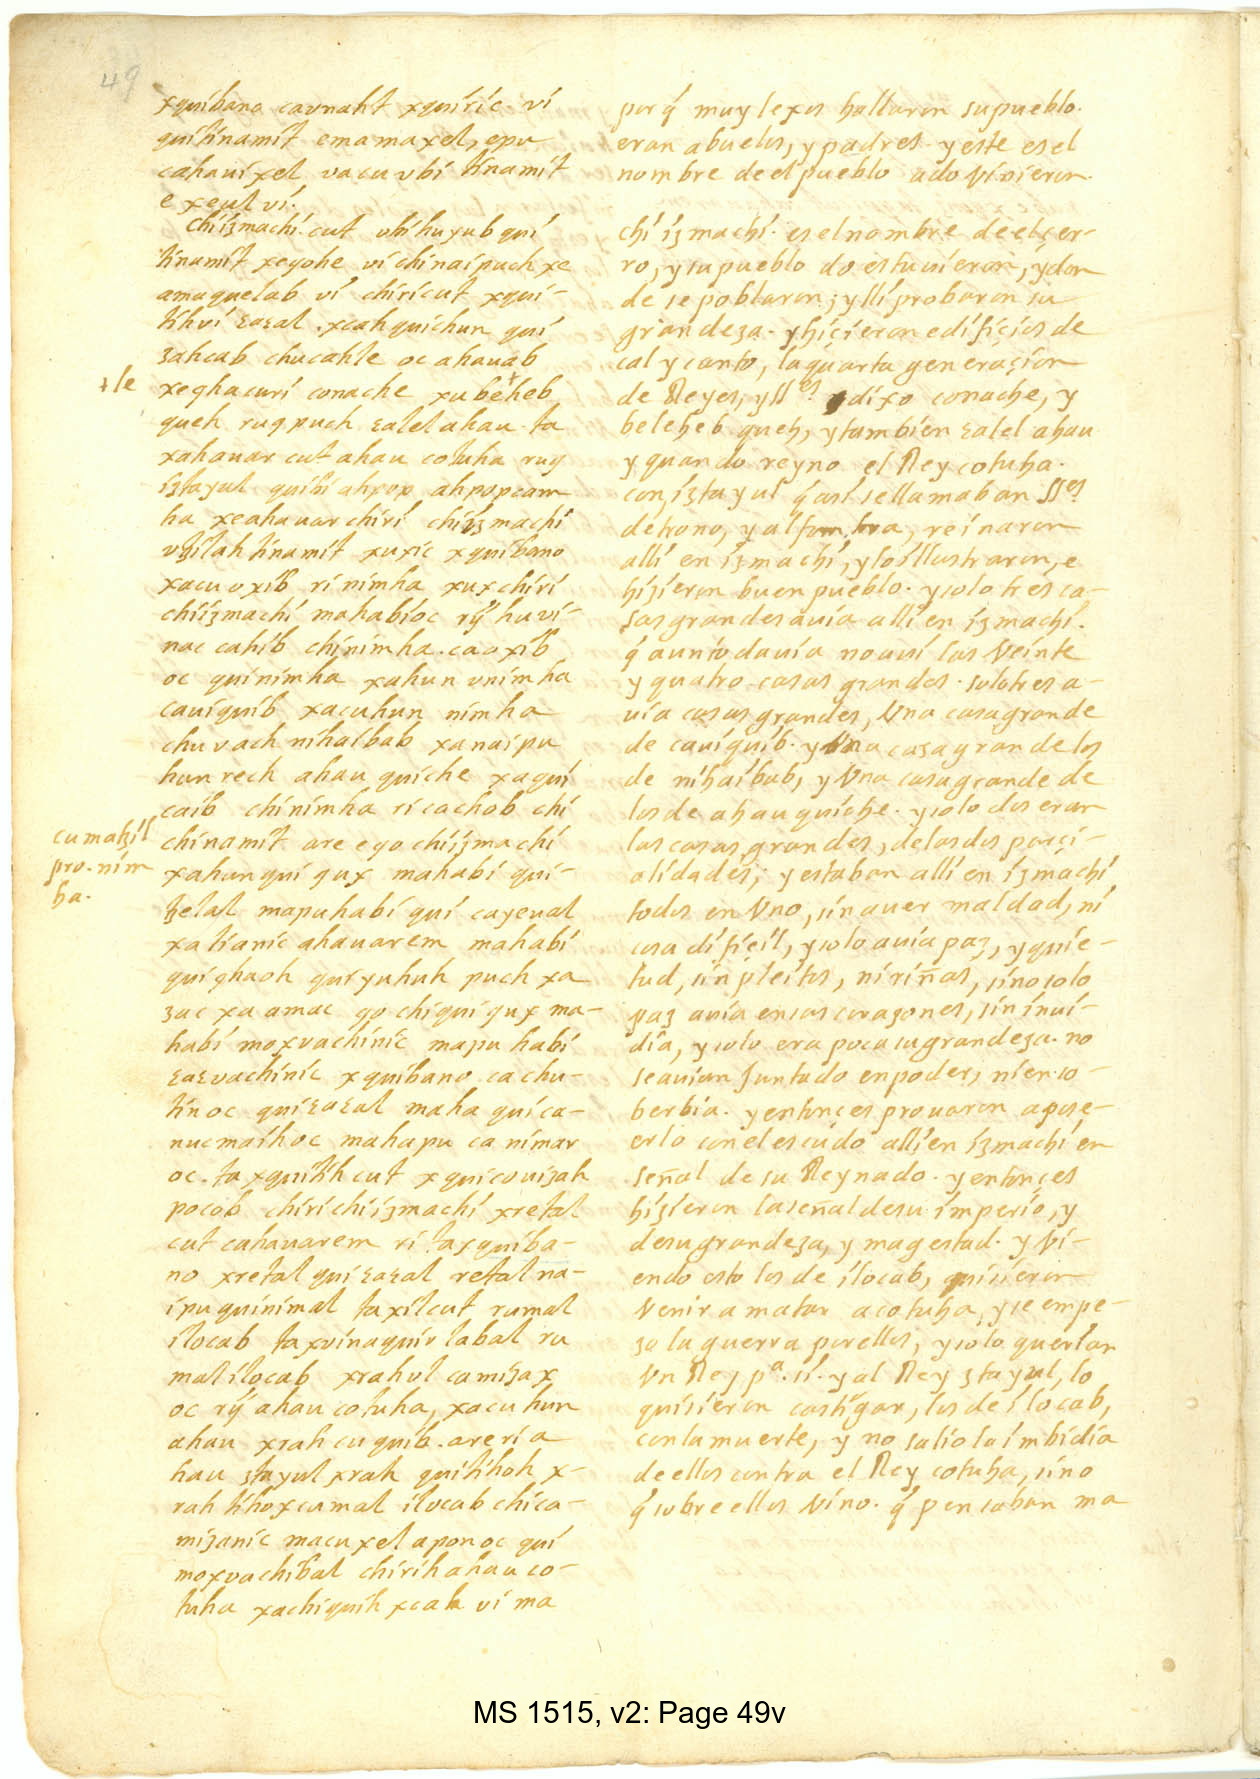 49
xquibano caonaht xquiric vi
quitinamit emamaxel, epu
cahauixel vacu vbi tinamit
e xeul vi.
chiizmachi cut vbi huyub qui
tinamit xeyohe vi chinaipuch xe
amaquelab vi chiricut xqui-
tihvi εaεal. xcahquichun qui
zahcab chucahle oc ahauab
xeqhacuri conache xubeheb
queh ruqpuch εalel ahau ta
xahauar cut ahau cotuha ruq
iztayul quibi ahpop ahpopcam
ha xeahauar chiri chiizmachi
vtzilah tinamit xuxic xquibano
xacu oxib ri nimha xux chiri
chiizmachi mahabioc rij huvi-
nac cahib chinimha. caoxib
oc quinimha xahun vnimha
cauiquib xacuhun nimha
chuvach nihaibab xanaipu
hun rech ahau quiche xaqui
caib chinimha ricachob chi
chinamit are eqo chiizmachi
xahunqui qux mahabi qui-
tzelal mapuhabi qui cayeual
xalianic ahauarem mahabi
quiqhaoh quiyuhuh puch xa
zac xa amac qo chiqui qux ma-
habi moxvachinic mapu habi
εaεvachinic xquibano ca chu-
tinoc quiεaεal maha quica-
nucmaihoc mahapu ca nimar
oc. ta xquitih cut xquicouizah
pocob chirichiizmachi xretal
cut cahauarem ri taxquiba-
no xretal quiεaεal retal na-
ipu quinimal taxilcut rumal
ilocab taxvinaquir labal ru
mal ilocab xrahul camizax
oc rij ahau cotuha, xacu hun
ahau xrah cu quib. areri a
hau ztayul xrah quitihoh x-
rah tihoxcumal ilocab chica-
mizanic macuxel aponoc qui
moxvachibal chirih ahau co-
tuha xachiquih xcah vi ma
ɜle
cumatzil
pro. nim
ha.
porq̃ muy lexos hallaron su pueblo.
eran abuelos, y padres. y este es el
nombre de el pueblo ado vinieron.
chi izmachi. es el nombre de el çer-
ro, y su pueblo do estuuieron, y don
de se poblaron; y lli probaron su
grandeza. y hiçieron edifiçios de
cal y canto, la quarta generaçion
de Reyes, y llos dixo conache, y
beleheb queh, y tambien εalel ahau
y quando reyno el Rey cotuha.
con iztayul q̃ asi se llamaban SSes
detrono, y alfombra, reinaron
alli en izmachi, y lo illustraron, e
hizieron buen pueblo. y solo tres ca-
sas grandes auia alli en izmachi.
q̃ aun todauia no aui las Veinte
y quatro casas grandes. solo tres a-
uia casas grandes, Vna casa grande
de cauiquib. y Vna casa grande los
de nihaibab, y Vna casa grande de
los de ahau quiche. y solo dos eran
las casas grandes, de las dos parçi-
alidades; y estaban alli en izmachi
todos en Vno, sin auer maldad, ni
cosa difiçil, y solo auia paz, y quie-
tud, sin pleitos, ni riñas, sino solo
paz auia en sus corazones, sin inui-
dia, y solo era poca su grandeza. no
se auian Juntado en poder, ni en so-
berbia. y entonçes prouaron a pose-
erlo con el escudo alli en izmachi en
señal de su Reynado. y entonçes
hizieron la señal de su imperio, y
de su grandeza, y magestad. y Vi-
endo esto los de ilocab, quisieron
Venir a matar a cotuha, y se empe-
zo la guerra por ellos, y solo querian
Vn Rey pa. si. y al Rey ztayul, lo
quisieron castigar, los de ilocab,
con la muerte, y no salio la imbidia
de ellos contra el Rey cotuha, sino
q̃ sobre ellos Vino. q̃ pensaban ma
MS 1515, v2: Page 49v